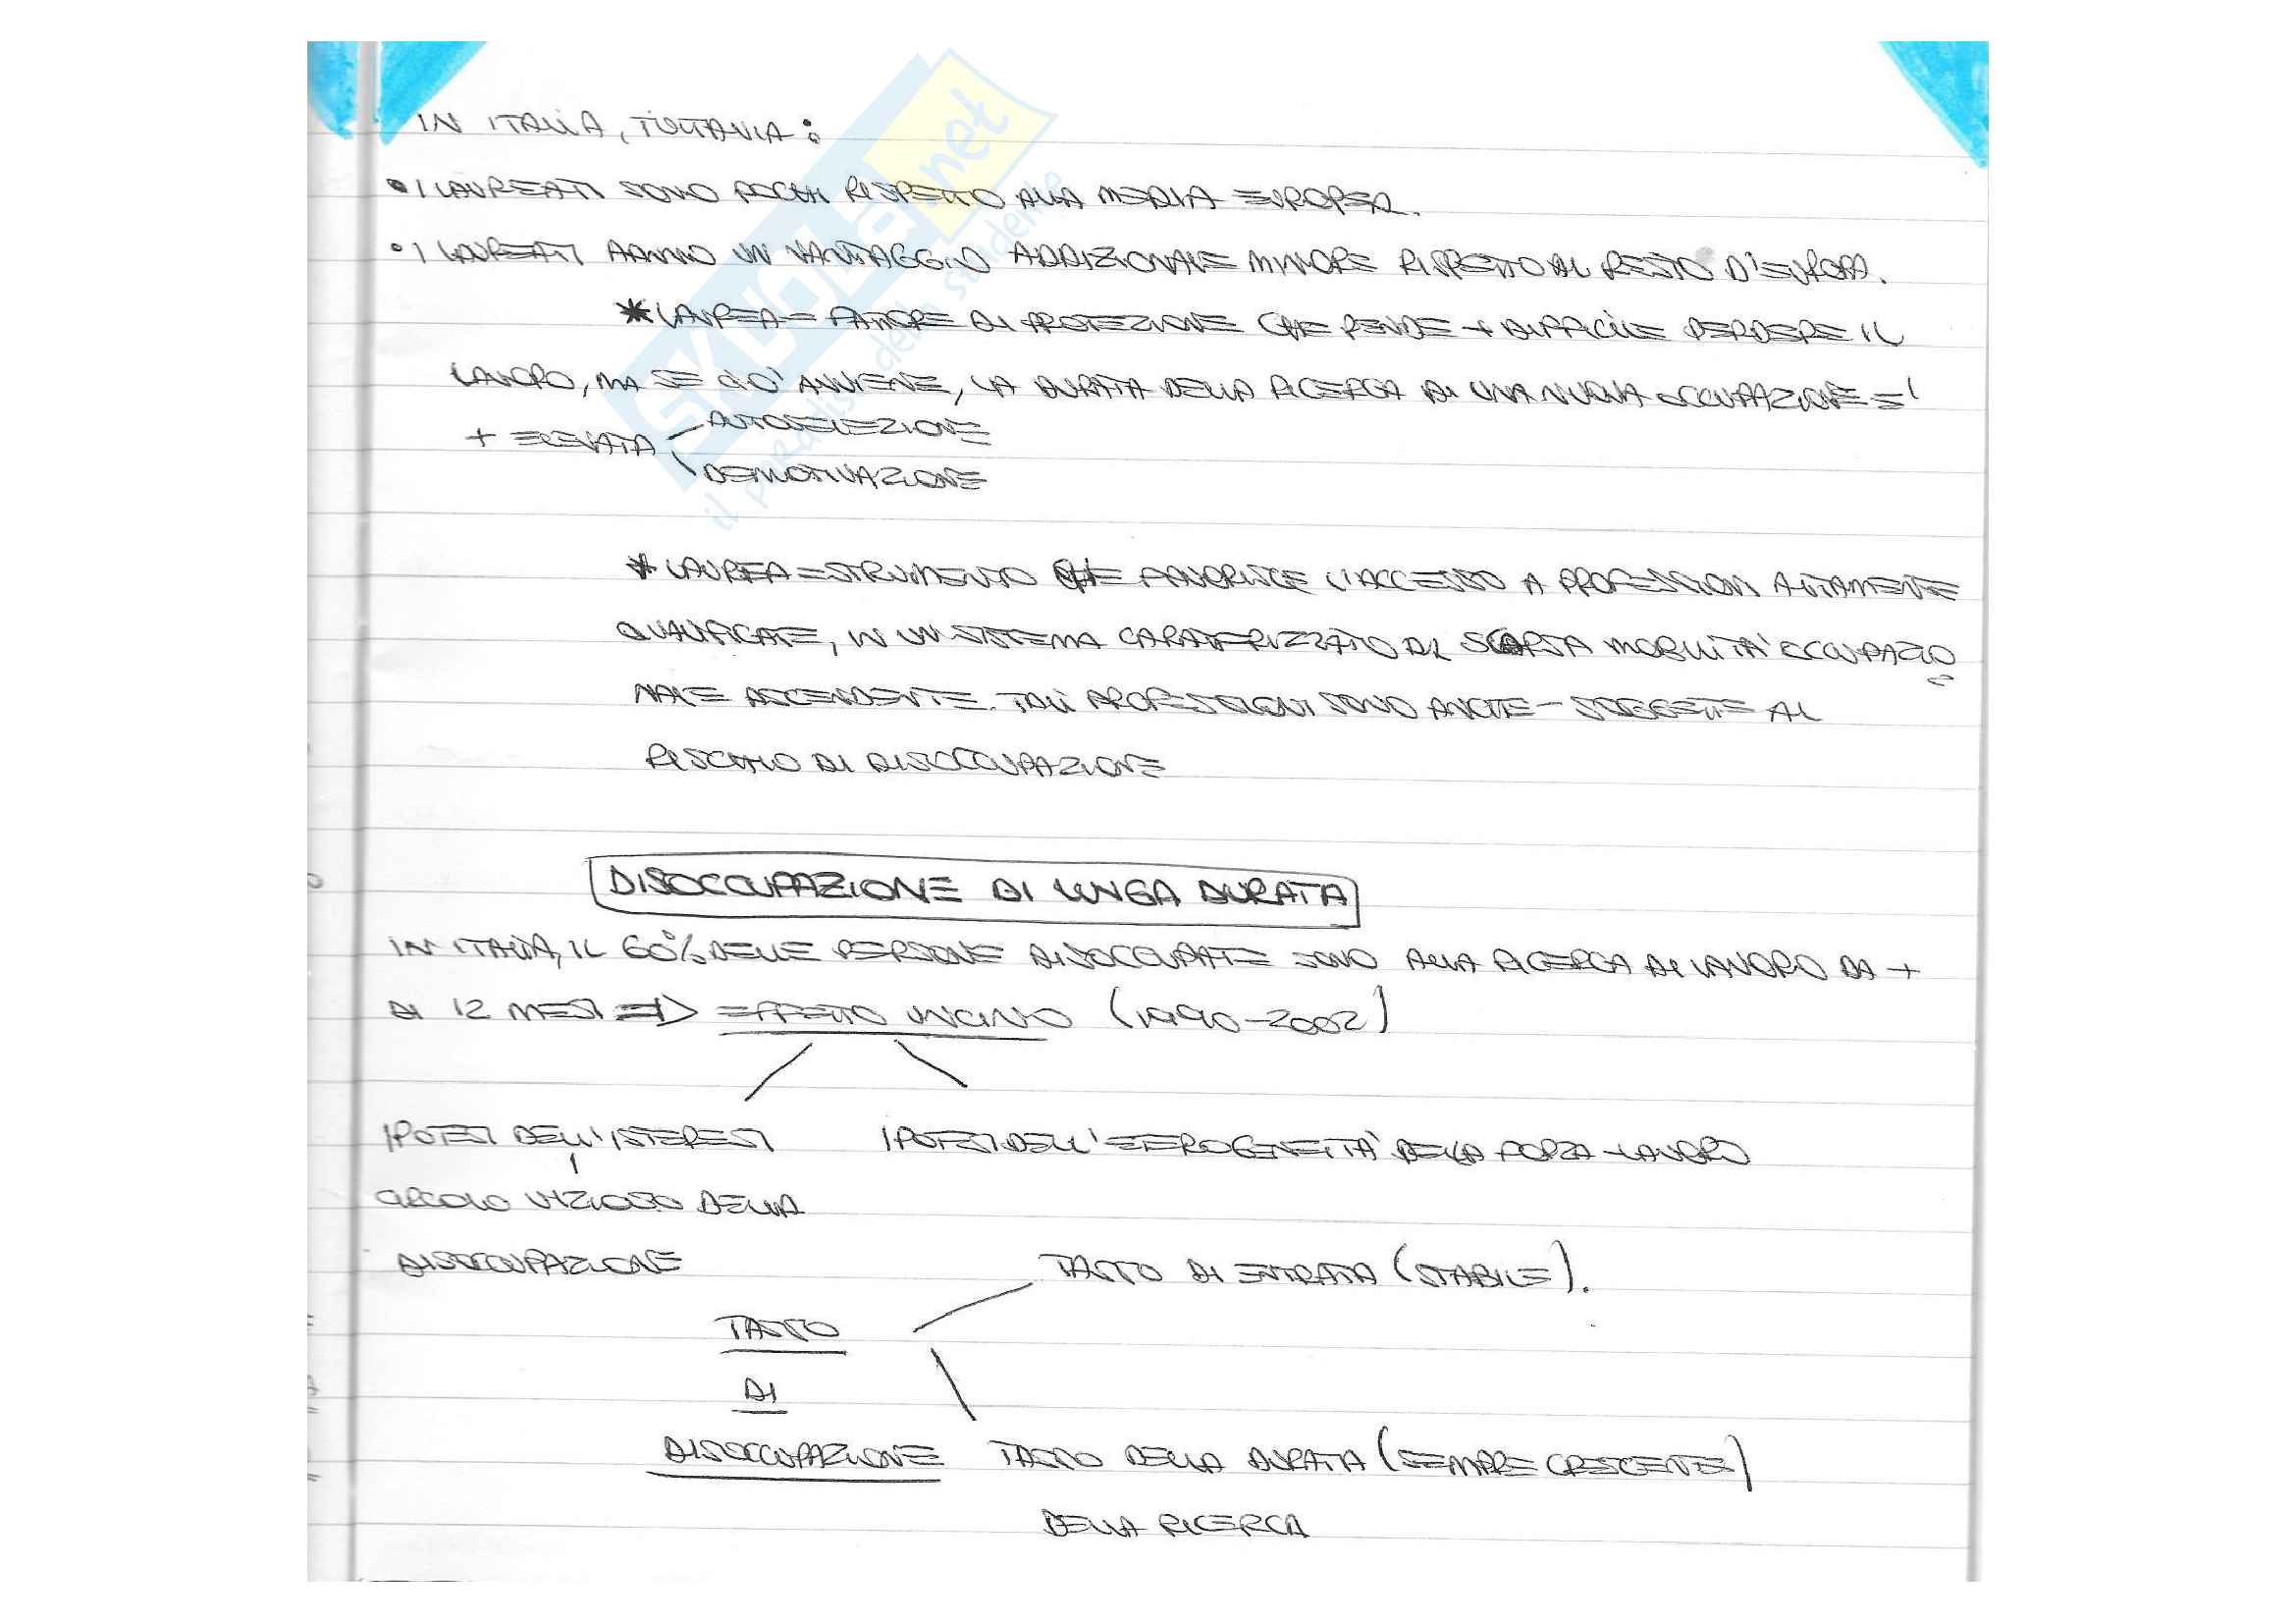 IN ITALIA, TUTTAVIA:
• I LAUREATI SONO POCHI RISPETTO ALLA MEDIA EUROPEA.
• I LAUREATI HANNO UN VANTAGGIO ADDIZIONALE MINORE RISPETTO AL RESTO D'EUROPA.
* LAUREA = FATTORE DI PROTEZIONE CHE RENDE + DIFFICILE PERDERE IL
LAVORO, MA SE CIO' AVVIENE, LA DURATA DELLA RICERCA DI UNA NUOVA OCCUPAZIONE E'
+ ELEVATA
AUTOSELEZIONE
DEMOTIVAZIONE
* LAUREA = STRUMENTO CHE FAVORISCE L'ACCESSO A PROFESSIONI ALTAMENTE
QUALIFICATE, IN UN SISTEMA CARATTERIZZATO DA SCARSA MOBILITA' OCCUPAZIO
NALE ASCENDENTE. TALI PROFESSIONI SONO ANCHE - SOGGETTE AL
RISCHIO DI DISOCCUPAZIONE
DISOCCUPAZIONE DI LUNGA DURATA
IN ITALIA, IL 60% DELLE PERSONE DISOCCUPATE SONO ALLA RICERCA DI LAVORO DA +
DI 12 MESI => EFFETTO UNCINO (1990-2002)
IPOTESI DELL'ISTERESI IPOTESI DELL'ETEROGENEITA' DELLA FORZA-LAVORO
CIRCOLO VIZIOSO DELLA
DISOCCUPAZIONE
TASSO DI ENTRATA (STABILE).
TASSO
DI
DISOCCUPAZIONE TASSO DELLA DURATA (SEMPRE CRESCENTE)
DELLA RICERCA
SKUOLA.net
il paradiso dello studente